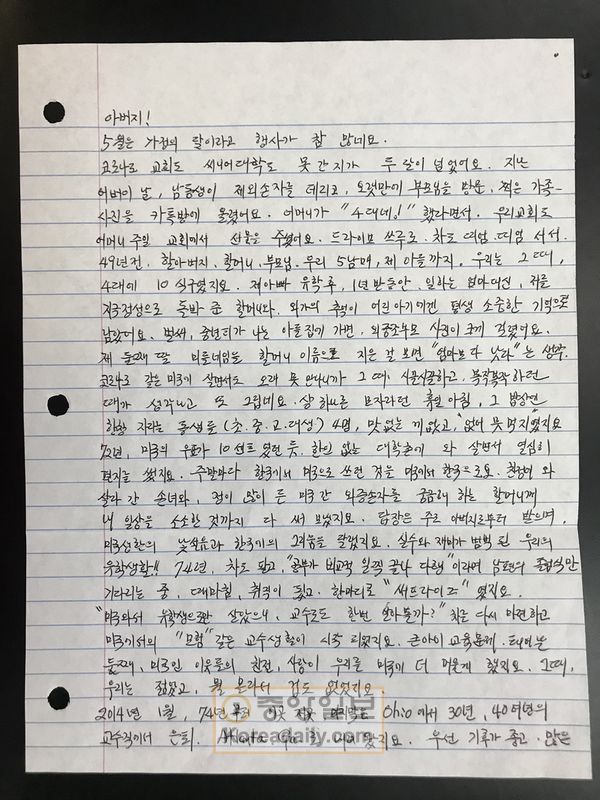 아버지!
5월은 가정의 달이라고 행사가 참 많네요.
코로나로 교회도 씨니어대학도 못 간지가 두 달이 넘었어요. 지난
어버이 날, 남동생이 제 외손자를 데리고, 오랫만에 부모님을 방문, 찍은 가족-
사진을 카톡방에 올렸어요. 어머니가 "4대네!" 했다면서. 우리교회도
어머니 주일 교회에서 선물을 주셨어요. 드라이브 쓰루로. 차도 띄엄.띄엄 서서.
49년전. 할아버지. 할머니, 부모님. 우리 5남매, 제 아들까지, 우리는 그때,
4대에 10 식구였지요. 제아빠 유학후, 1년 반동안. 일하는 엄마대신, 저를
지극정성으로 돌봐 준 할머니다. 외가의 추억이 어린아기에겐 평생 소중한 기억으로
남았어요. 벌써, 중년티가 나는 아들집에 가면. 외증조부모 사진이 크게 걸렸어요.
제 둘째 딸 미들네임을 할머니 이름으로 지은 걸 보면 "엄마보다 낫다"는 생각.
코로나로 같은 미국에 살면서도 오래 못 만나니까 그 때. 시끌시끌하고, 북적북적 하던
때가 생각나고 또 그립네요. 상 하나론 모자라던 휴일 아침, 그 밥상엔
한창 자라는 동생들 (초.중.고.대생) 4명, 맛없는 게 없고, "없어 못 먹지"였지요
72년, 미국의 우표가 10센트 였던 듯. 한인 없는 대학촌에 와 살면서 열심히
편지는 썼지요. 주말마다 한국에서 미국으로 쓰던 것을 미국에서 한국으로요. 친정에 와
살다 간 손녀와, 정이 많이 든 미국 간 외증손자를 궁금해 하는 할머니께
내 일상을 소소한 것까지 다 써 보냈지요. 답장은 주로 아버지로부터 받으며,
미국생활의 낯설음과 한국에의 그리움을 달랬지요. 실수와 재미가 범벅 된 우리의
유학생활!! 74년, 차도 팔고 "공부가 비교적 일찍 끝나 다행"이라며 남편의 졸업식만
기다리는 중, 때마침, 취직이 됐고. 한마디로 "써프라이즈" 였지요.
"미국와서 유학생으로만 살았으니, 교수로도 한번 살아볼까?" 차를 다시 마련하고
미국에서의 "모험" 같은 교수생활이 시작 되었지요. 큰아이 교육문제, 태어난
둘째, 미국인 이웃들의 친절, 사랑이 우리를 미국에 더 머물게 했지요. 그때,
우리는 젊었고, 뭘 몰라서 겁도 없었지요
2014년 1월, 74년부터 Ohio에서 30년, 40여년의
교수직에서 은퇴. Atlanta 우선 기후가 좋고. 많은
중앙일보
Koreadaily.com